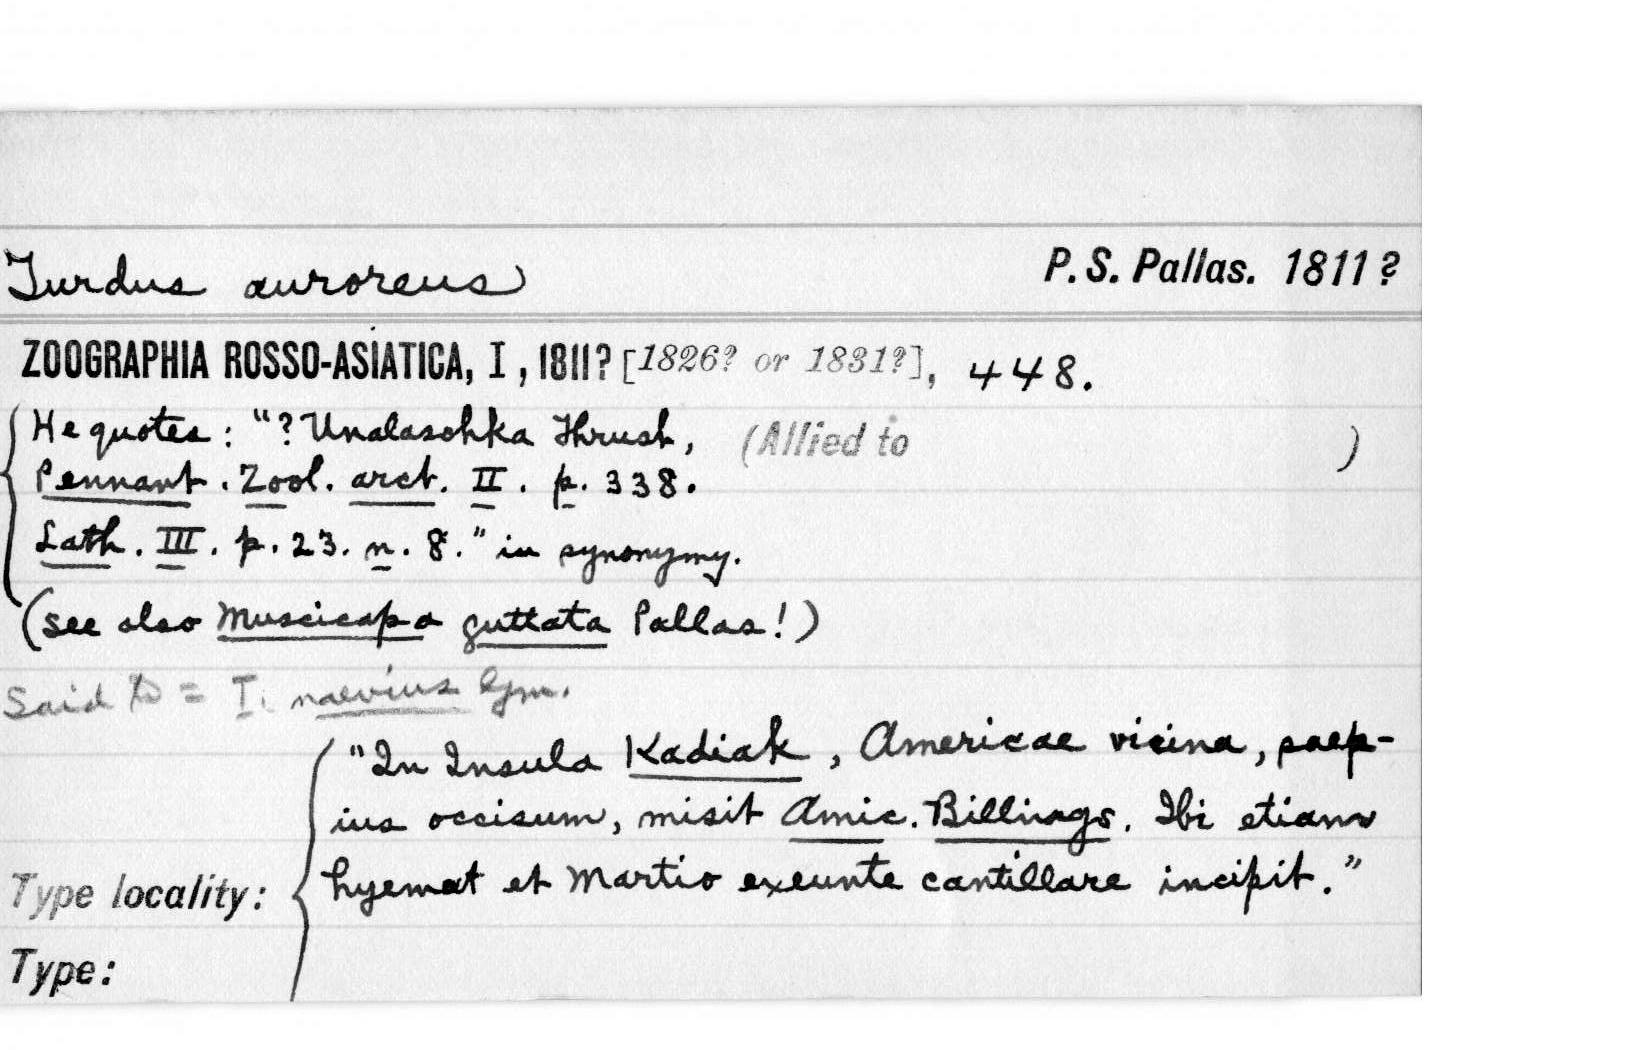 Turdus auroreus P. S. Pallas. 1811?
ZOOGRAPHIA ROSSO-ASIATICA, I, 1811? [1826? or 1831?], 448.
He quotes: "? Unalaschka Thrush, (Allied to )
Pennant. Zool. arct. II. p. 338.
Lath. III. p. 23. n. 8." in synonymy.
(see also Muscicapa guttata Pallas!)
Said to = T. naevius Gm.
"In Insula Kadiak, Americae vicina, saep-
ius occisum, misit Amic. Billings. Ibi etiam
Type locality: hyemat et Martio exeunte cantillare incipit."
Type: